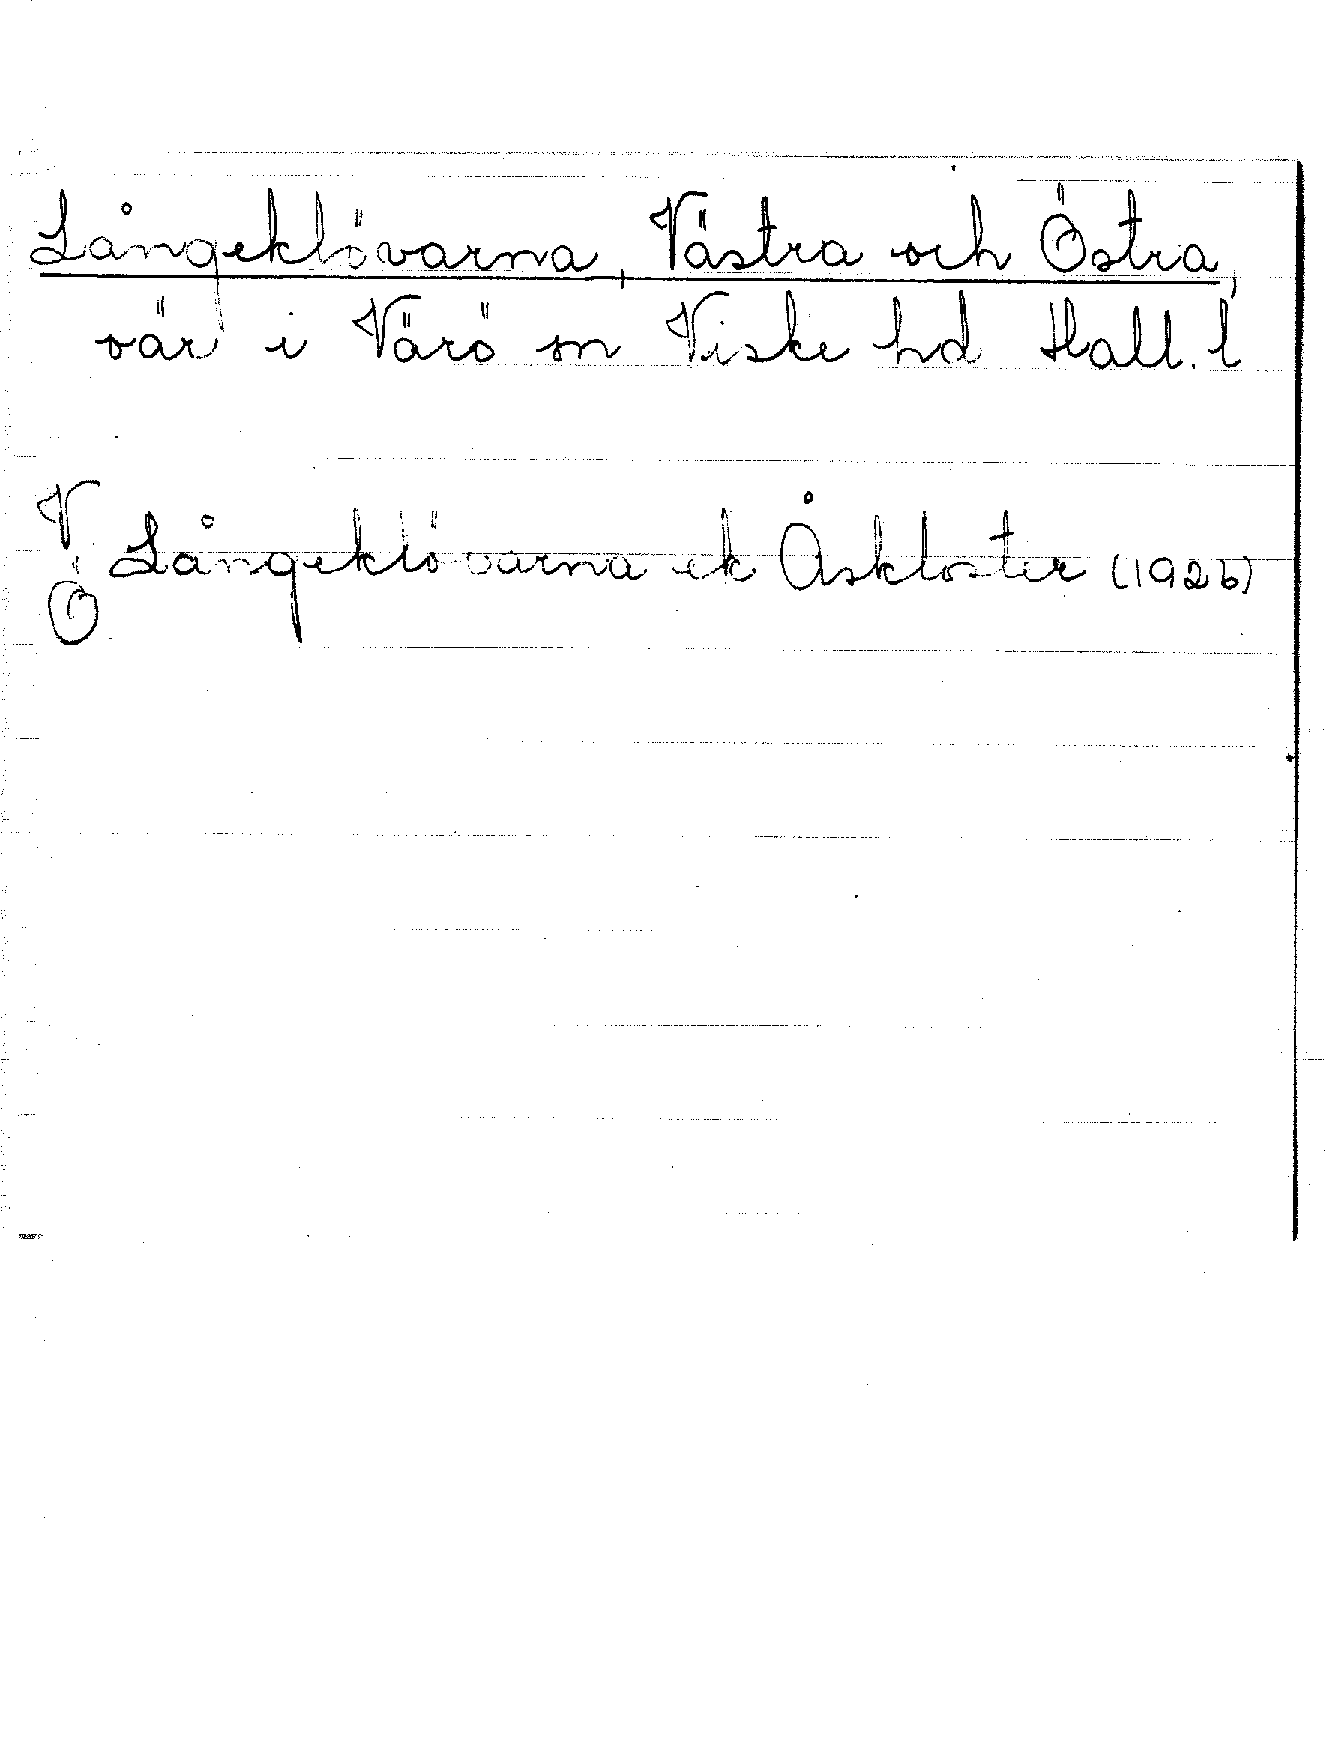 Långeklövarna, Västra och Östra,
vär i Värö sn Viske hd Hall. l
V
Långeklövarna ek Åskloster (1926)
Ö